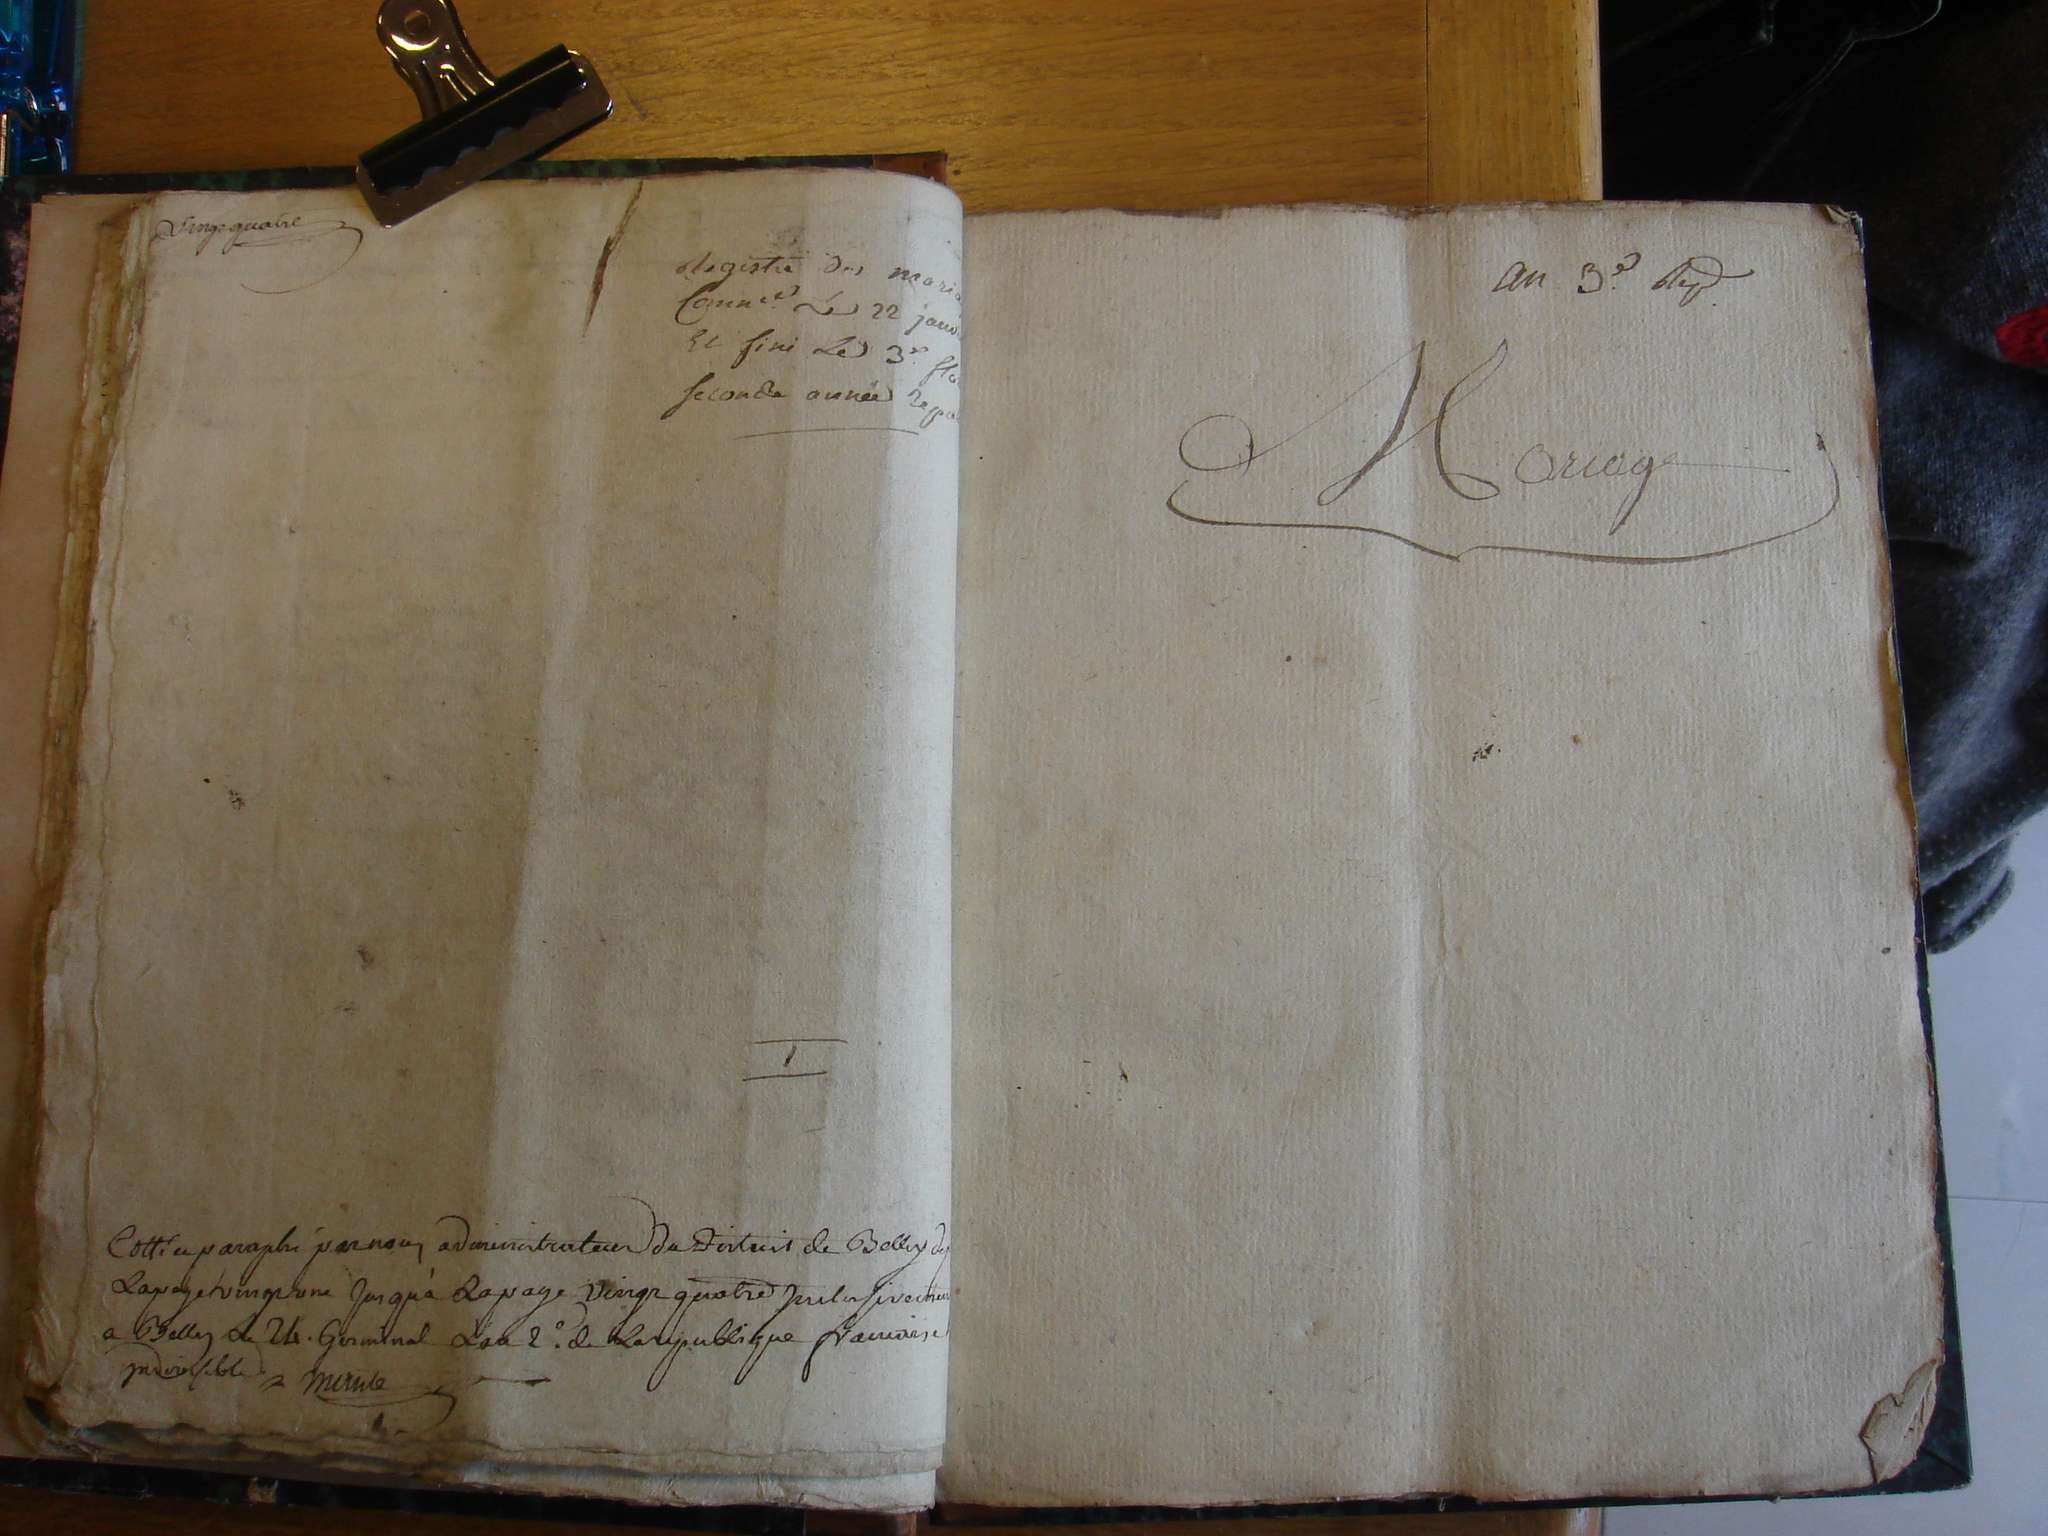 Vingt quatre
Registre des maria
Commcé Le 22 janv
Et fini Le 3e. flo
seconde année Repu
1
Cotté et paraphé par nous administrateur du District de Belley
La page vingt une jusqu'à La page Vingt quatre Inclusivement
a Belley Le 24. Germinal L'an 2e. de La republique francaise
indivisible
an 3e. Rep.
Mariage